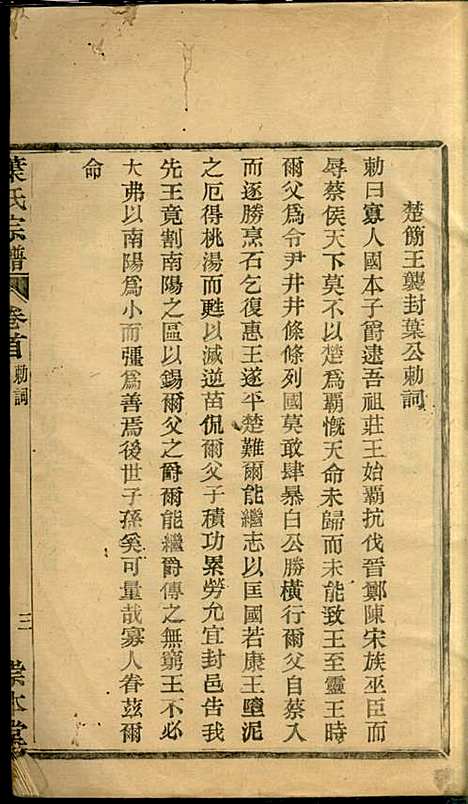 楚簡王襲封葉公勅詞
勅曰寡人國本子爵逮吾祖莊王始霸抗伐晉鄭陳宋族巫臣而
辱蔡侯天下莫不以楚爲霸慨天命未歸而未能致王至靈王時
爾父爲令尹井井條條列國莫敢肆暴白公勝橫行爾父自蔡入
而逐勝烹石乞復惠王遂平楚難爾能繼志以匡國若康王墮泥
之厄得桃湯而甦以滅逆苗侃爾父子積功累勞允宜封邑告我
先王竟割南陽之區以錫爾父之爵爾能繼爵傳之無窮王不必
大弗以南陽爲小而彊爲善焉後世子孫奚可量哉寡人眷茲爾
命
葉氏宗譜 卷首 勅詞 三 崇本堂